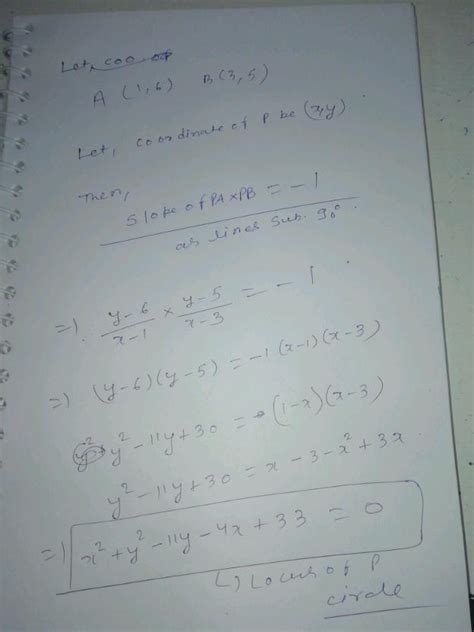 Let, coo of
A (1,6) B(3,5)
Let, coordinate of P be (x,y)
Then,
Slope of PA x PB = -1
as lines sub. 90°.
=) y-6/x-1 × y-5/x-3 = -1
=) (y-6)(y-5) = -1(x-1)(x-3)
y² - 11y + 30 = (1-x)(x-3)
y² - 11y + 30 = x - 3 - x² + 3x
=) x² + y² - 11y - 4x + 33 = 0
↳ Locus of P
circle